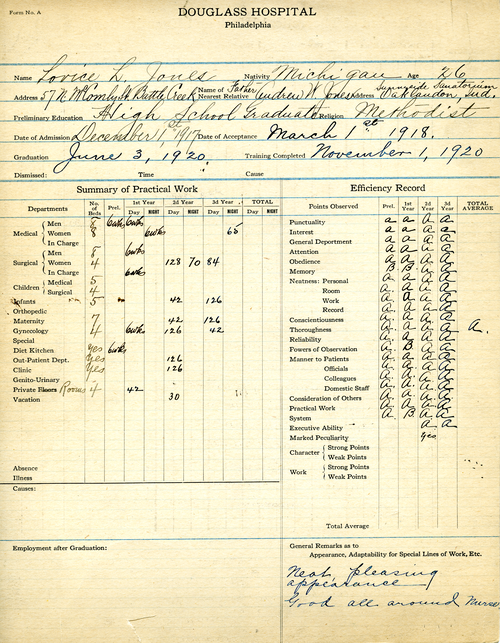 Form No. A
DOUGLASS HOSPITAL
Philadelphia
Name Lovice L. Jones Nativity Michigan Age 26
Address 57 N. McCamly St. Battle Creek Name of Father Nearest Relative Andrew W. Jones Address Sunnyside Sanatorium Ind.
Preliminary Education High School Graduate Religion Methodist
Date of Admission December 1, 1917 Date of Acceptance March 1st 1918.
Graduation June 3, 1920. Training Completed November 1, 1920
Dismissed: Time Cause
Summary of Practical Work
Departments No. of Beds Prel. 1st Year 2d Year 3d Year TOTAL
Day NIGHT Day NIGHT Day NIGHT Day NIGHT
Medical Men 8 6wks 6wks
Women 8 6wks 65
In Charge
Surgical Men 8 6wks
Women 4 128 70 84
In Charge 6wks
Children Medical 5
Surgical 4
Infants 5 42 126
Orthopedic
Maternity 7 42 126
Gynecology 4 6wks 126 42
Special
Diet Kitchen Yes 6wks
Out-Patient Dept. Yes 126
Clinic Yes 126
Genito-Urinary
Private Floors Rooms 4 42
Vacation 30
Absence
Illness
Causes:
Employment after Graduation:
Efficiency Record
Points Observed Prel. 1st Year 2d Year 3d Year TOTAL AVERAGE
Punctuality a a A A
Interest a a a A
General Department a a A A
Attention a a A A
Obedience a a A A
Memory B B A A
Neatness: Personal a a A A
Room a a A A
Work a a A A
Record a a A A
Conscientiousness a a A A
Thoroughness a a A A A.
Reliability a a A A
Powers of Observation a B A A
Manner to Patients a a A A
Officials a a A A
Colleagues a a A A
Domestic Staff a a A A
Consideration of Others a a A A
Practical Work a a A A
System a B A A
Executive Ability A A
Marked Peculiarity yes
Character Strong Points
Weak Points
Work Strong Points
Weak Points
Total Average
General Remarks as to
Appearance, Adaptability for Special Lines of Work, Etc.
Neat, pleasing
appearance
Good all around Nurse